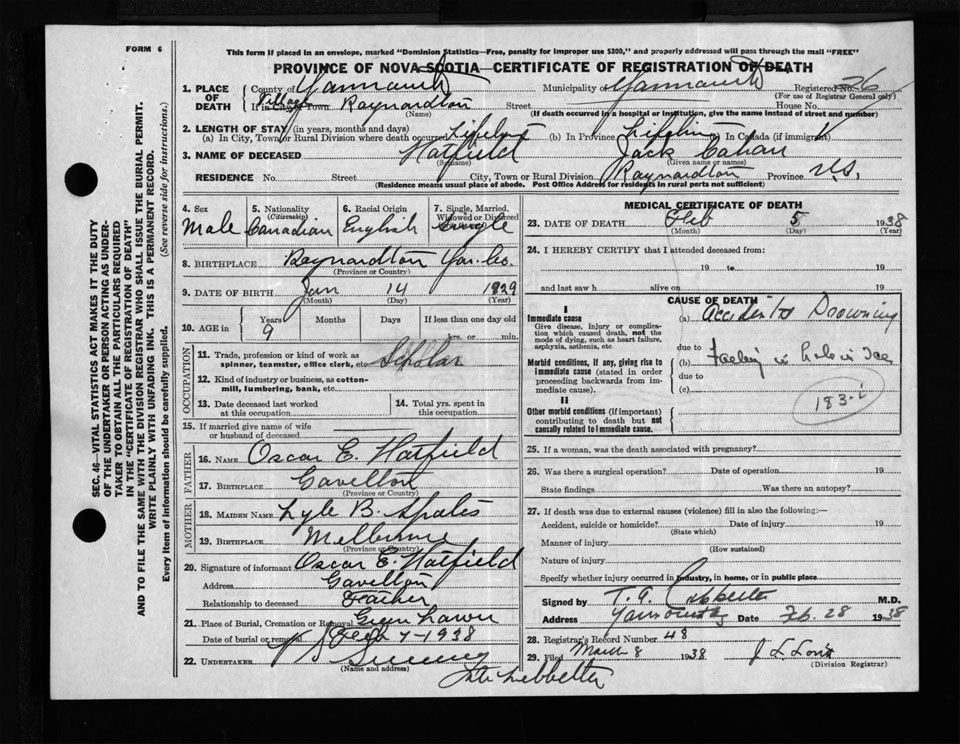 FORM 6
This form if placed in an envelope, marked "Dominion Statistics—Free, penalty for improper use $300," and properly addressed will pass through the mail "FREE"
PROVINCE OF NOVA SCOTIA—CERTIFICATE OF REGISTRATION OF DEATH
SEC. 46—VITAL STATISTICS ACT MAKES IT THE DUTY
OF THE UNDERTAKER OR PERSON ACTING AS UNDER-
TAKER TO OBTAIN ALL THE PARTICULARS REQUIRED
IN THE "CERTIFICATE OF REGISTRATION OF DEATH"
AND TO FILE THE SAME WITH THE DIVISION REGISTRAR WHO SHALL ISSUE THE BURIAL PERMIT.
WRITE PLAINLY WITH UNFADING INK. THIS IS A PERMANENT RECORD.
Every item of information should be carefully supplied. (See reverse side for instructions.)
1. PLACE OF DEATH County of Yarmouth Municipality of Yarmouth Registered No. 26
(For use of Registrar General only)
If in City, Town Village Raynardton Street House No.
(Name) (If death occurred in a hospital or institution, give the name instead of street and number)
2. LENGTH OF STAY (in years, months and days)
(a) In City, Town or Rural Division where death occurred Lifetime (b) In Province Lifetime In Canada (if immigrant)
3. NAME OF DECEASED Hatfield Jack
(Surname) (Given name or names)
RESIDENCE No. Street City, Town or Rural Division Raynardton Province N.S.
(Residence means usual place of abode. Post Office Address for residents in rural parts not sufficient)
4. Sex Male
5. Nationality (Citizenship) Canadian
6. Racial Origin English
7. Single, Married, Widowed or Divorced Single
8. BIRTHPLACE Raynardton Yar. Co.
(Province or Country)
9. DATE OF BIRTH Jan 14 1929
(Month) (Day) (Year)
10. AGE in Years Months Days If less than one day old
9 hrs. or min.
OCCUPATION
11. Trade, profession or kind of work as
spinner, teamster, office clerk, etc. Scholar
12. Kind of industry or business, as cotton-
mill, lumbering, bank, etc.
13. Date deceased last worked
at this occupation
14. Total yrs. spent in
this occupation
15. If married give name of wife
or husband of deceased
FATHER
16. NAME Oscar E. Hatfield
17. BIRTHPLACE Gavelton
(Province or Country)
MOTHER
18. MAIDEN NAME Lyle B.
19. BIRTHPLACE Melbourne
(Province or Country)
20. Signature of informant Oscar E. Hatfield
Address Gavelton
Relationship to deceased Father
21. Place of Burial, Cremation or Removal Green Lawn
Date of burial or removal Feb 7-1938
22. UNDERTAKER V S Sweeny
(Name and address)
MEDICAL CERTIFICATE OF DEATH
23. DATE OF DEATH Feb 5 1938
(Month) (Day) (Year)
24. I HEREBY CERTIFY that I attended deceased from:
19 to 19
and last saw h alive on 19
CAUSE OF DEATH
I
Immediate cause
Give disease, injury or complica-
tion which caused death, not the
mode of dying, such as heart failure,
asphyxia, asthenia, etc.
(a) Accidental Drowning
due to
Morbid conditions, if any, giving rise to
immediate cause (stated in order
proceeding backwards from im-
mediate cause).
(b) Falling in hole in Ice
due to
(c)
183-i
II
Other morbid conditions (if important)
contributing to death but not
causally related to immediate cause.
25. If a woman, was the death associated with pregnancy?
26. Was there a surgical operation? Date of operation 19
State findings Was there an autopsy?
27. If death was due to external causes (violence) fill in also the following:—
Accident, suicide or homicide? Date of injury 19
(State which)
Manner of injury
(How sustained)
Nature of injury
Specify whether injury occurred in industry, in home, or in public place
Signed by T. A. Lebbetter M.D.
Address Yarmouth Date Feb. 28 1938
28. Registrar's Record Number 48
29. Filed March 8 1938
(Division Registrar)
Lebbetter